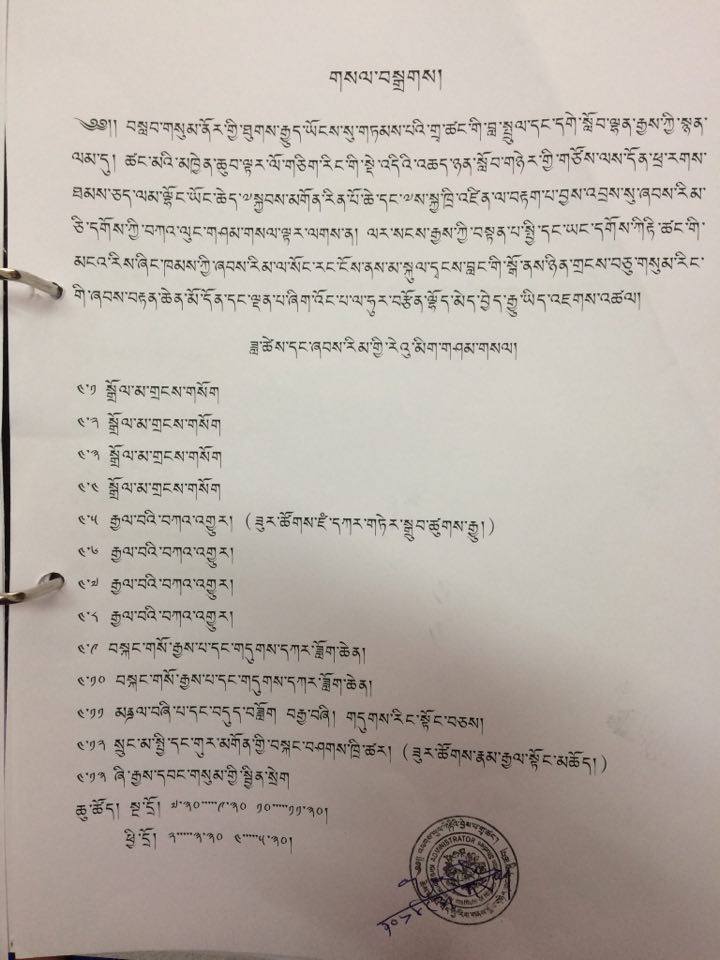 གསལ་བསྒྲགས།
༄༅།། བསླབ་གསུམ་ནོར་གྱི་ཐུགས་རྒྱུད་ཡོངས་སུ་གཏམས་པའི་གྲྭ་ཚང་གི་བླ་སྤྲུལ་དང་དགེ་སློབ་ལྷན་རྒྱས་ཀྱི་སྙན་
ལམ་དུ། ཚང་མའི་མཁྱེན་ཆུབ་ལྟར་ལོ་གཅིག་རིང་གི་སྡེ་འདིའི་འཆད་ཉན་སློབ་གཉེར་གྱི་གཙོས་ལས་དོན་ཕྲ་རགས་
ཐམས་ཅད་ལམ་ལྷོང་ཡོང་ཆེད་༧སྐྱབས་མགོན་རིན་པོ་ཆེ་དང་༧ས་སྐྱ་ཁྲི་འཛིན་ལ་བརྟག་པ་བྱས་འབྲས་སུ་ཞབས་རིམ་
ཅི་དགོས་ཀྱི་བཀའ་ལུང་གཤམ་གསལ་ལྟར་ལགས་ན། ལར་སངས་རྒྱས་ཀྱི་བསྟན་པ་སྤྱི་དང་ཡང་དགོས་ཀིརྟི་ཚང་གི་
མངའ་རིས་ཞིང་ཁམས་ཀྱི་ཞབས་རིམ་ལ་སོང་རང་ངོས་ནས་མ་སྐུལ་དྭངས་བླང་གི་སྒོ་ནས་ཉིན་གྲངས་བཅུ་གསུམ་རིང་
གི་ཞབས་བརྟན་ཆེན་མོ་དོན་དང་ལྡན་པ་ཞིག་འོང་པ་ལ་ཧུར་བརྩོན་ལྷོད་མེད་བྱེད་རྒྱུ་ཡིད་འཇགས་འཚལ།
ཟླ་ཚེས་དང་ཞབས་རིམ་གྱི་རེའུ་མིག་གཤམ་གསལ།
༤་༡ སྒྲོལ་མ་གྲངས་གསོག
༤་༢ སྒྲོལ་མ་གྲངས་གསོག
༤་༣ སྒྲོལ་མ་གྲངས་གསོག
༤་༤ སྒྲོལ་མ་གྲངས་གསོག
༤་༥ རྒྱལ་བའི་བཀའ་འགྱུར། (ཟུར་ཚོགས་ཛཾ་དཀར་གཏེར་སྒྲུབ་ཚུགས་རྒྱུ།)
༤་༦ རྒྱལ་བའི་བཀའ་འགྱུར།
༤་༧ རྒྱལ་བའི་བཀའ་འགྱུར།
༤་༨ རྒྱལ་བའི་བཀའ་འགྱུར།
༤་༩ བསྐང་གསོ་རྒྱས་པ་དང་གདུགས་དཀར་ཟློག་ཆེན།
༤་༡༠ བསྐང་གསོ་རྒྱས་པ་དང་གདུགས་དཀར་ཟློག་ཆེན།
༤་༡༡ མཎྜལ་བཞི་པ་དང་བདུད་བཟློག བརྒྱ་བཞི། གདུགས་རིང་སྟོང་བཅས།
༤་༡༢ སྲུང་མ་སྤྱི་དང་གུར་མགོན་གྱི་བསྐང་བཤགས་ཁྲི་ཚར། (ཟུར་ཚོགས་རྣམ་རྒྱལ་སྟོང་མཆོད།)
༤་༡༣ ཞི་རྒྱས་དབང་གསུམ་གྱི་སྦྱིན་སྲེག
ཆུ་ཚོད། སྔ་དྲོ། ༧་༣༠་་་་་༩་༣༠ ༡༠་་་་་༡༡་༣༠།
ཕྱི་དྲོ། ༢་་་་་༣་༣༠ ༤་་་་་༥་༣༠།
ADMINISTRATOR